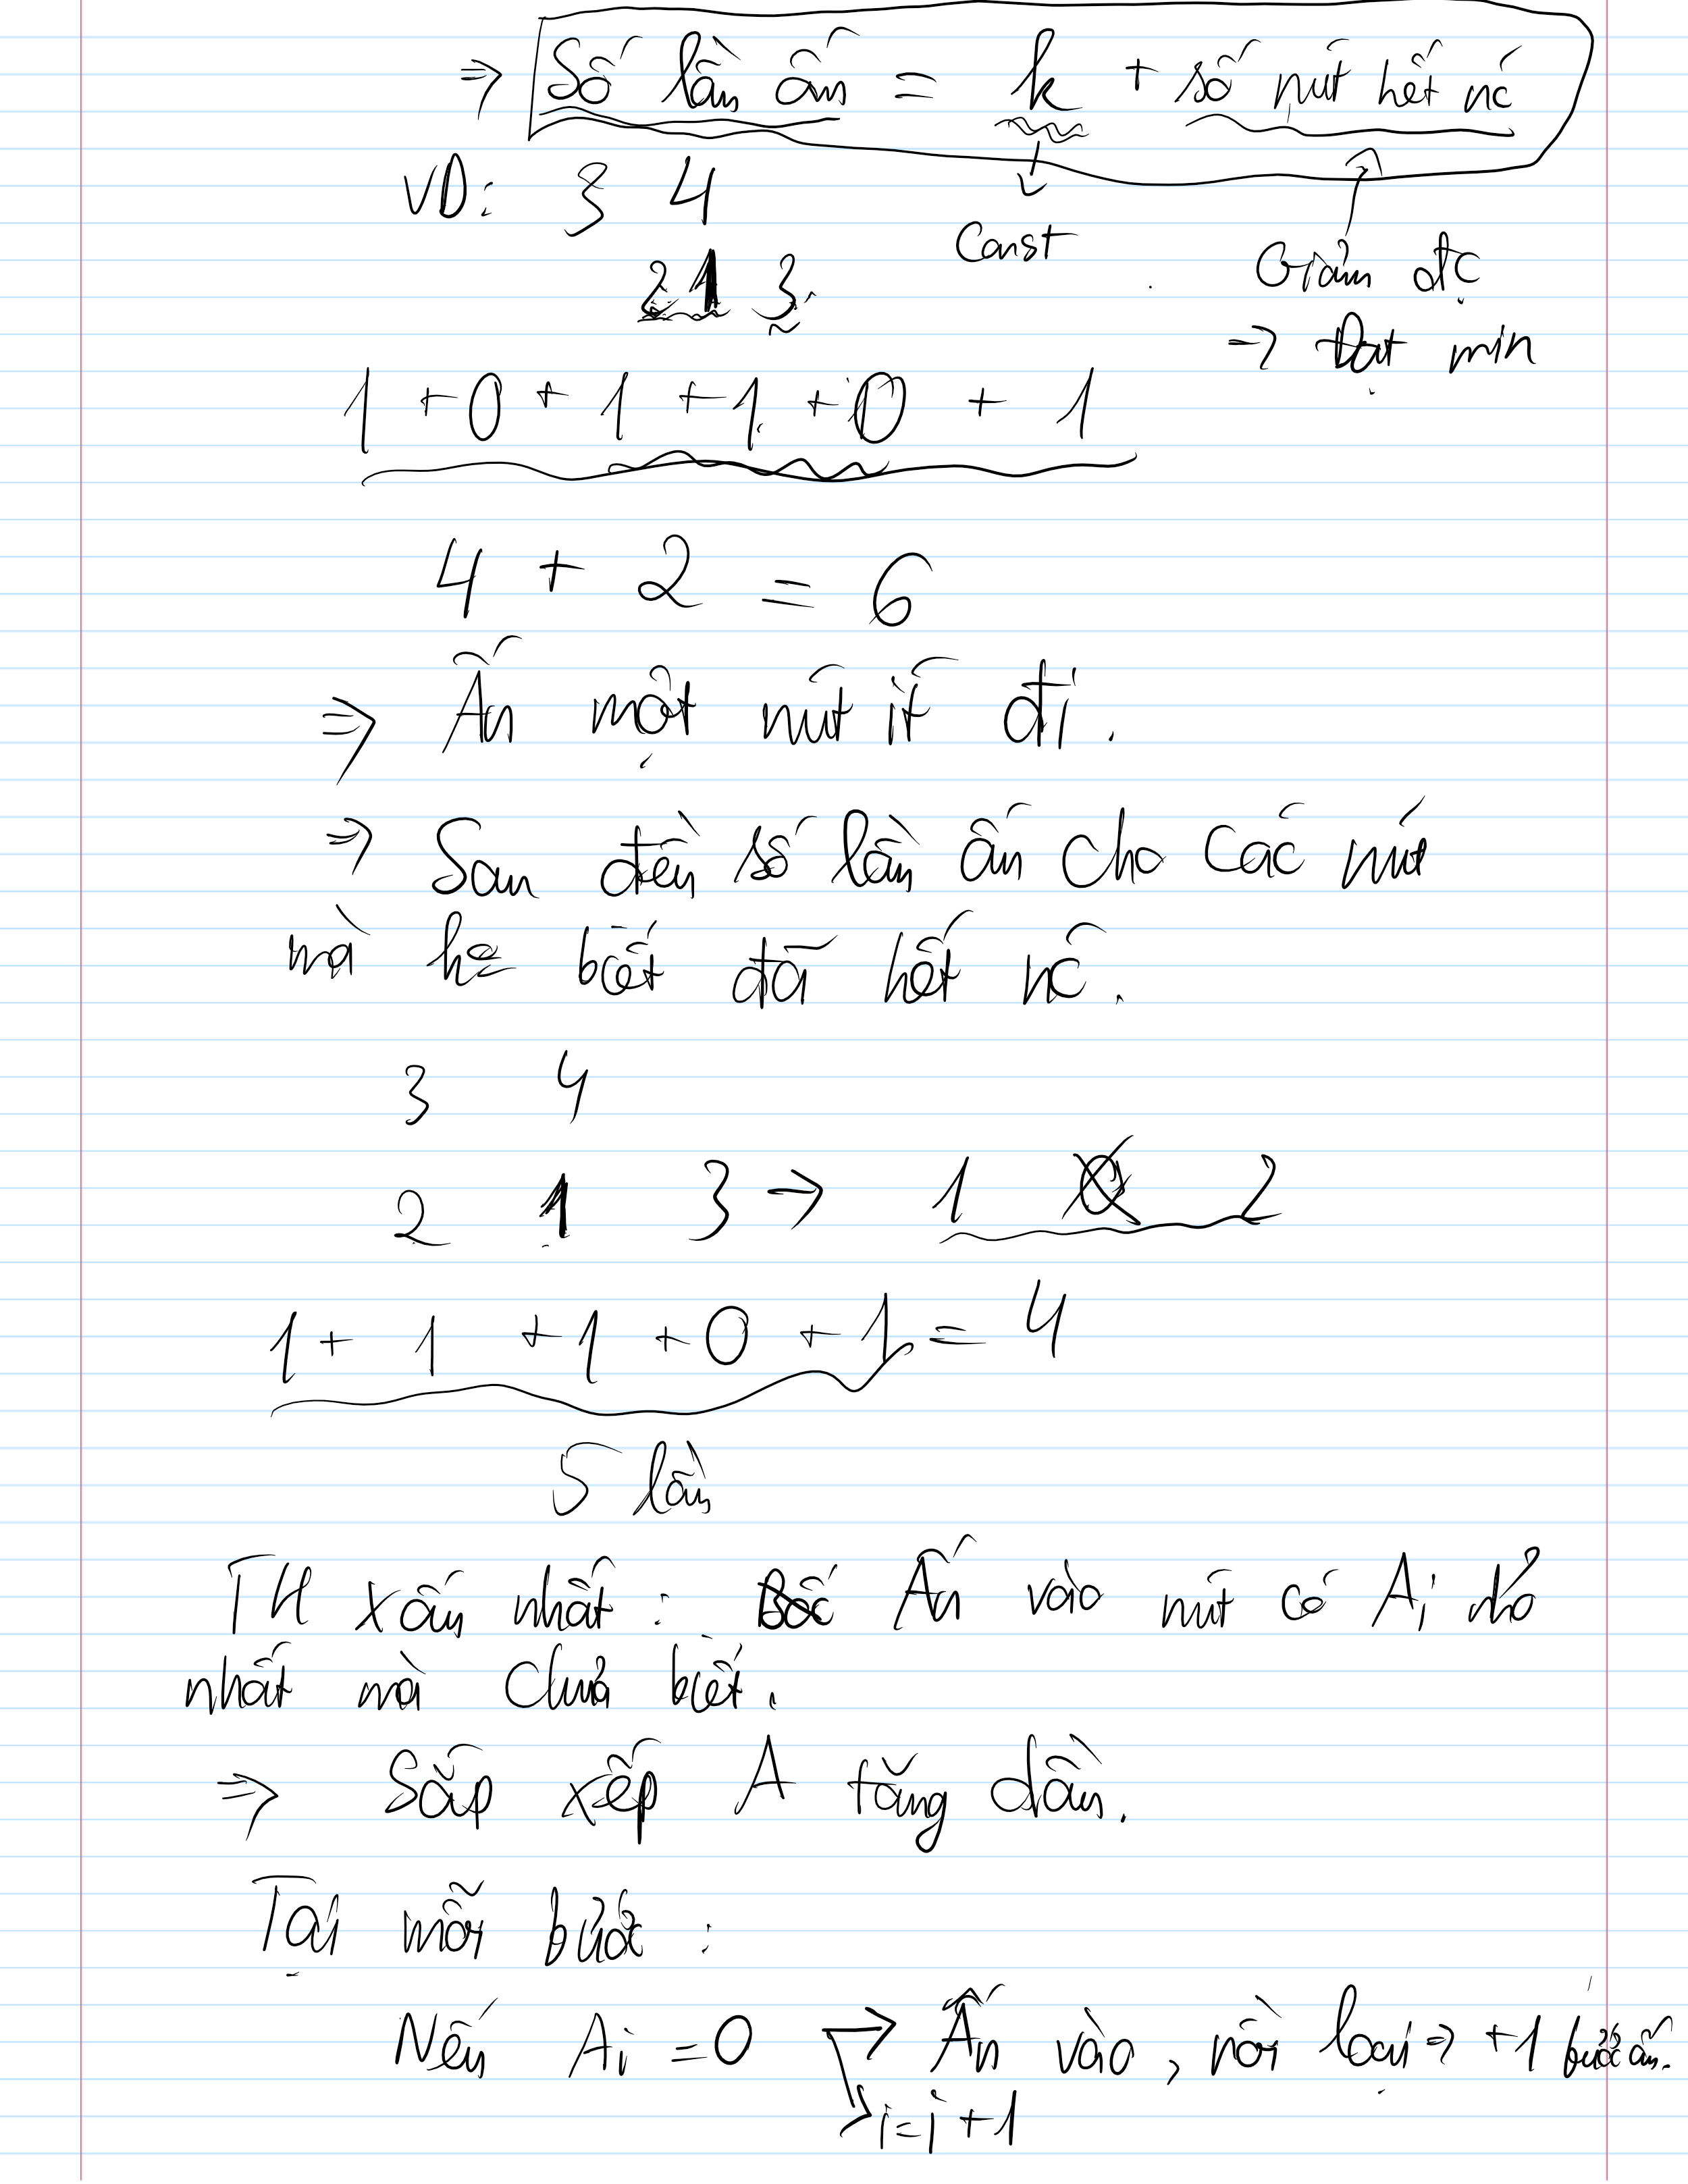 ⇒ Số lần ấn = k + số nút hết nc
VD: 3 4
Const
2 1 3
Giảm đc
→ Đạt min
1 + 0 + 1 + 1 + 0 + 1
4 + 2 = 6
⇒ Ấn một nút ít đi.
⇒ San đều số lần ấn cho các nút
mà ko biết đã hết nc.
3 4
2 1 3 → 1 0 2
1 + 1 + 1 + 0 + 1 = 4
5 lần
TH xấu nhất: Ấn vào nút có Ai nhỏ
nhất mà chưa biết.
⇒ Sắp xếp A tăng dần.
Tại mỗi bước:
Nếu Ai = 0 → Ấn vào, rồi loại ⇒ +1 bước ấn.
→ i = i + 1